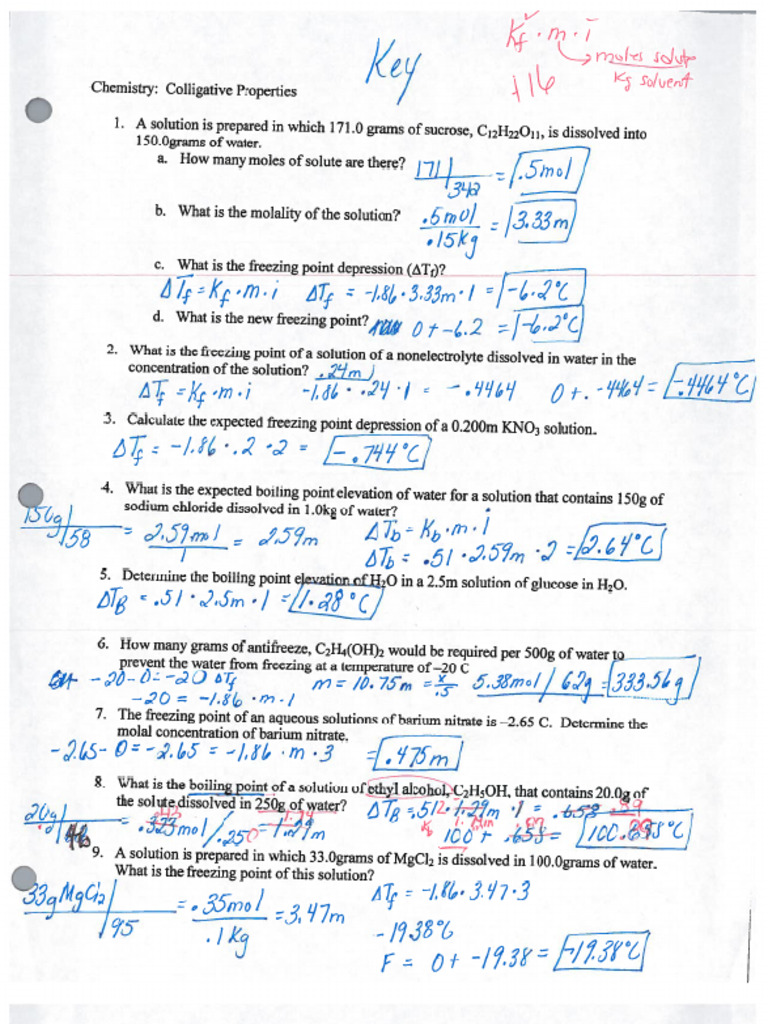 Kf · m · i
→ moles solute
Kg solvent
Key
+16
Chemistry: Colligative Properties
1. A solution is prepared in which 171.0 grams of sucrose, C₁₂H₂₂O₁₁, is dissolved into
150.0grams of water.
a. How many moles of solute are there? 171 / 342 = .5mol
b. What is the molality of the solution? .5mol / .15kg = 3.33m
c. What is the freezing point depression (ΔTf)?
ΔTf = Kf · m · i ΔTf = -1.86 · 3.33m · 1 = -6.2°C
d. What is the new freezing point? 0 + -6.2 = -6.2°C
2. What is the freezing point of a solution of a nonelectrolyte dissolved in water in the
concentration of the solution? .24m
ΔTf = Kf · m · i -1.86 · .24 · 1 = -.4464 0 + -.4464 = -.4464°C
3. Calculate the expected freezing point depression of a 0.200m KNO₃ solution.
ΔTf = -1.86 · .2 · 2 = -.744°C
4. What is the expected boiling point elevation of water for a solution that contains 150g of
sodium chloride dissolved in 1.0kg of water?
150g / 58 = 2.59mol / 1 = 2.59m ΔTb = Kb · m · i
ΔTb = .51 · 2.59m · 2 = 2.64°C
5. Determine the boiling point elevation of H₂O in a 2.5m solution of glucose in H₂O.
ΔTB = .51 · 2.5m · 1 = 1.28°C
6. How many grams of antifreeze, C₂H₄(OH)₂ would be required per 500g of water to
prevent the water from freezing at a temperature of –20 C
-20-0=-20 ΔTf m = 10.75m = x/.5 5.38mol / 62g = 333.56g
-20 = -1.86 · m · 1
7. The freezing point of an aqueous solutions of barium nitrate is –2.65 C. Determine the
molal concentration of barium nitrate.
-2.65-0=-2.65 = -1.86 · m · 3 = .475m
8. What is the boiling point of a solution of ethyl alcohol, C₂H₅OH, that contains 20.0g of
the solute dissolved in 250g of water? ΔTB = .512 · 1.29m · 1 = .658 .89
20g / 46 = .323mol / .250 = 1.29m 1.74
100 + .658 = 100.658°C .89
9. A solution is prepared in which 33.0grams of MgCl₂ is dissolved in 100.0grams of water.
What is the freezing point of this solution?
33g MgCl₂ / 95 = .35mol / .1Kg = 3.47m ΔTf = -1.86 · 3.47 · 3
-19.38°C
F = 0 + -19.38 = -19.38°C